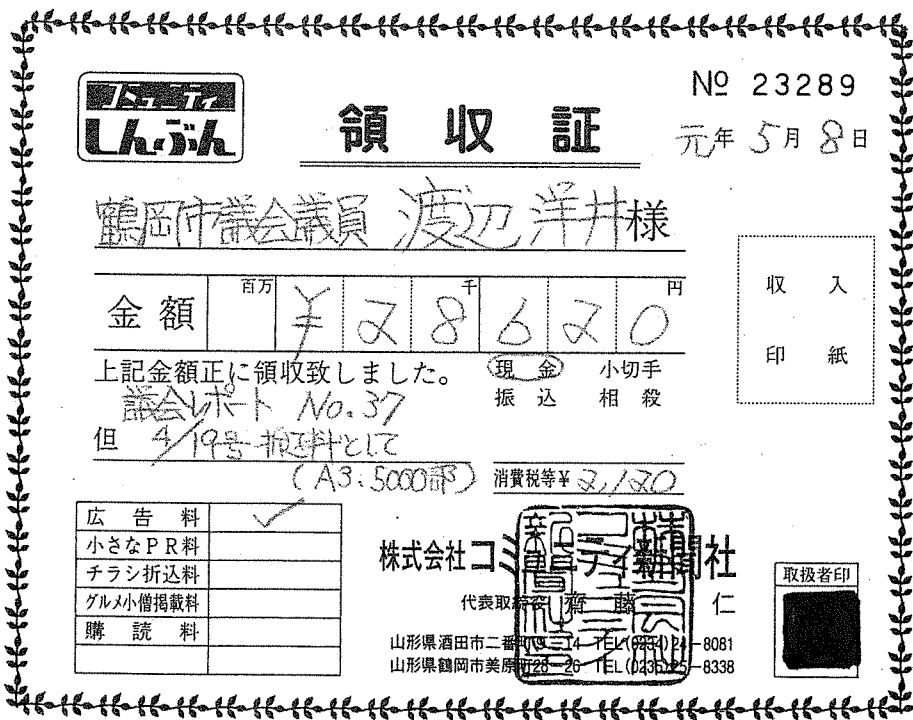 コミュニティ
しんぶん
領収証
№ 23289
元年 5月 8日
鶴岡市議会議員 渡辺 洋井様
金額 百万 ¥28千620円
上記金額正に領収致しました。
現金 小切手
振込 相殺
議会レポート No.37
但 4/19号 折込料として
(A3:5000部)
消費税等¥2,120
収入
印紙
広告料 ✓
小さなPR料
チラシ折込料
グルメ小僧掲載料
購読料
株式会社コミュニティ新聞社
代表取締役 齋藤 仁
山形県酒田市二番町9-14 TEL(0234)24-8081
山形県鶴岡市美原町28-26 TEL(0235)25-8338
取扱者印